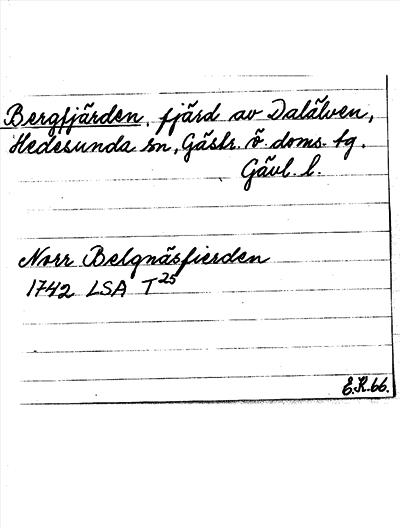 Bergfjärden, fjärd av Dalälven,
Hedesunda sn, Gästr. ö. doms. tg.
Gävl. l.
Norr Belgnäsfierden
1742 LSA T25
E.R.66.